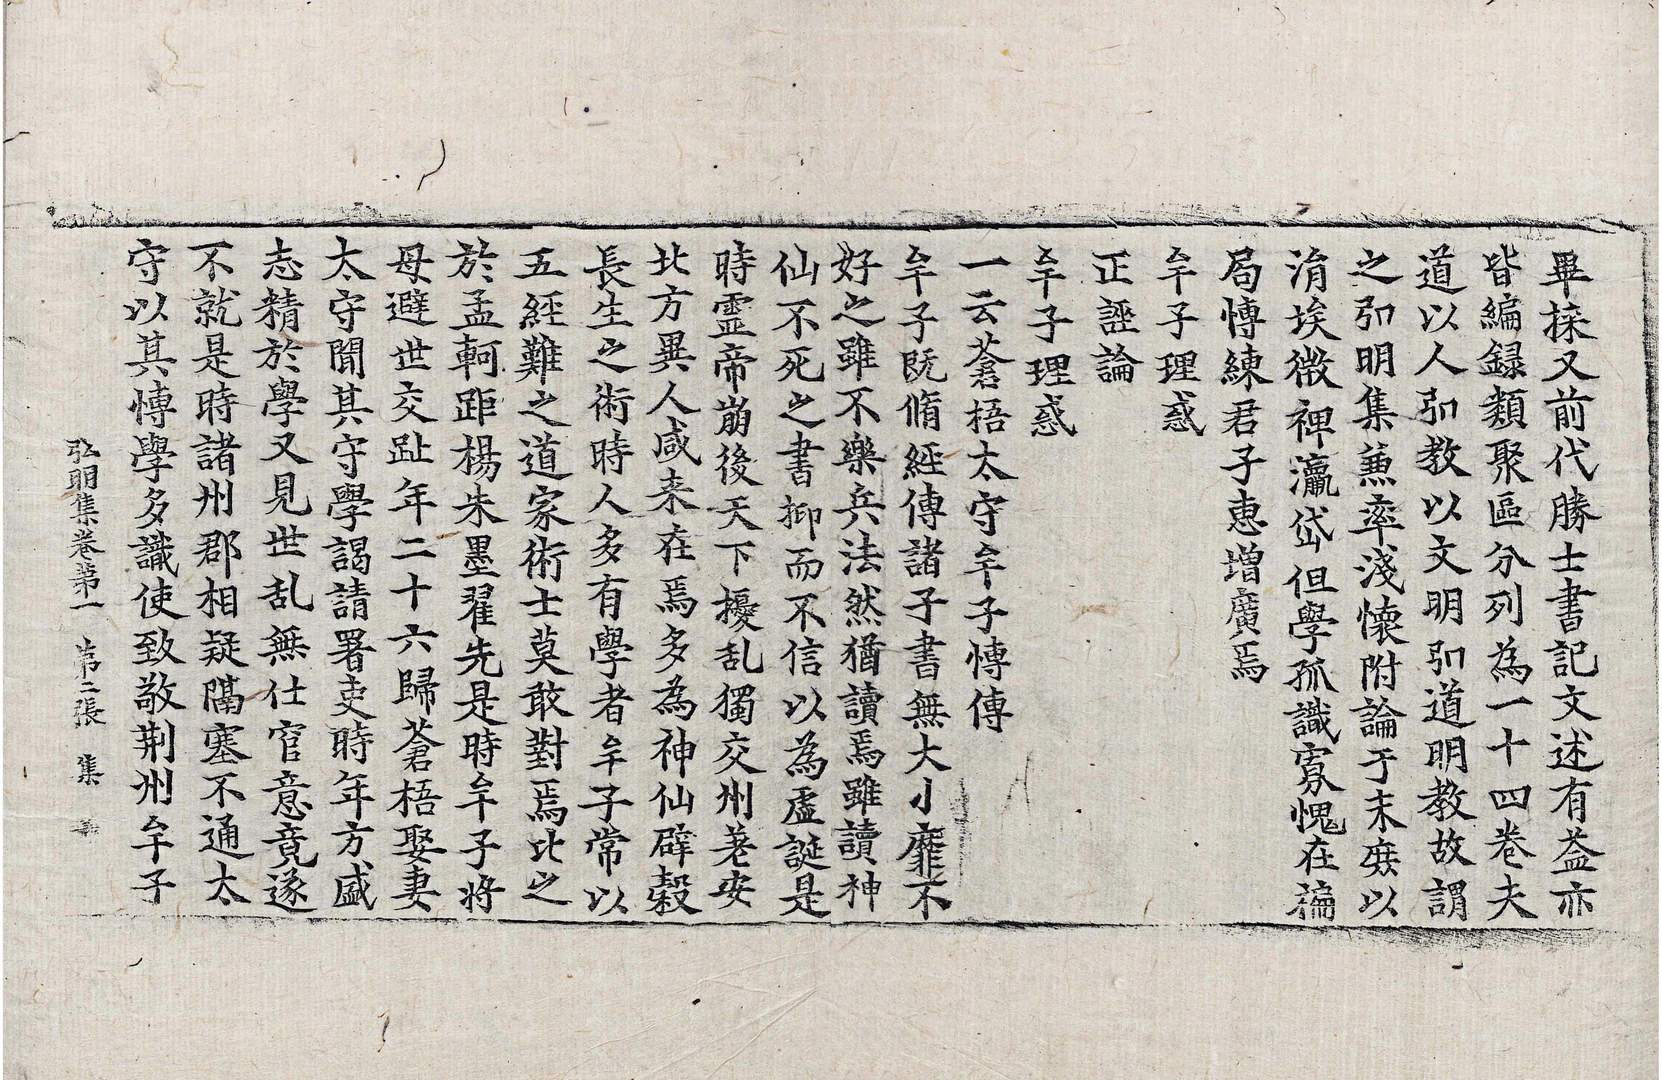 畢採又前代勝士書記文述有益亦
皆編録類聚區分列為一十四卷夫
道以人弘教以文明弘道明教故謂
之弘明集兼率淺懷附論于末庶以
涓埃微裨瀛岱但學孤識寡愧在褊
局博練君子惠增廣焉
牟子理惑
正誣論
牟子理惑
一云蒼梧太守牟子博傳
牟子既脩經傳諸子書無大小靡不
好之雖不樂兵法然猶讀焉雖讀神
仙不死之書抑而不信以為虛誕是
時靈帝崩後天下擾乱獨交州差安
北方異人咸来在焉多為神仙辟糓
長生之術時人多有學者牟子常以
五經難之道家術士莫敢對焉比之
於孟軻距楊朱墨翟先是時牟子將
母避世交趾年二十六歸蒼梧娶妻
太守聞其守學謁請署吏時年方盛
志精於學又見世乱無仕官意竟遂
不就是時諸州郡相疑隔塞不通太
守以其博學多識使致敬荆州牟子
弘明集卷第一 第二張 集